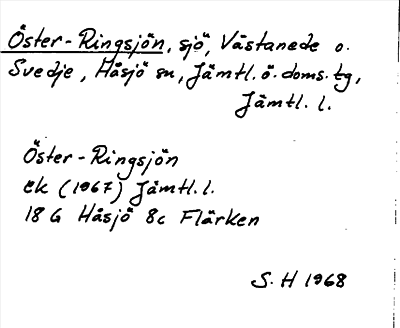 Öster-Ringsjön, sjö, Västanede o.
Svedje, Håsjö sn, Jämtl. ö. doms. tg,
Jämtl. l.
Öster-Ringsjön
ek (1967) Jämtl. l.
18 G Håsjö 8c Flärken
S. H 1968